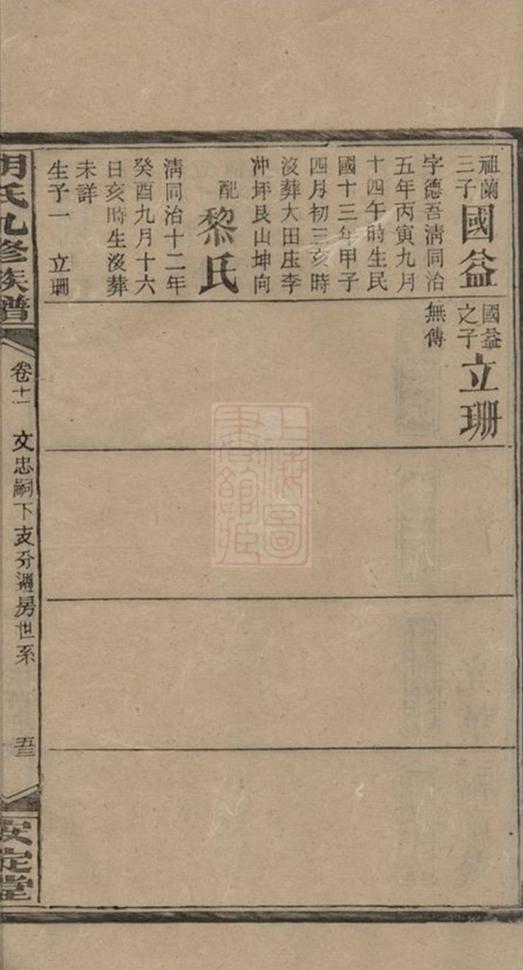 祖蘭
三子
國益
字德吾清同治
五年丙寅九月
十四午時生民
國十三年甲子
四月初三亥時
沒葬大田庄李
冲坪艮山坤向
配
黎氏
清同治十二年
癸酉九月十六
日亥時生沒葬
未詳
生子一 立珊
國益
之子
立珊
無傳
胡氏九修族譜
卷十一
文忠嗣下支分遷房世系
五三
安定堂
上海圖書館